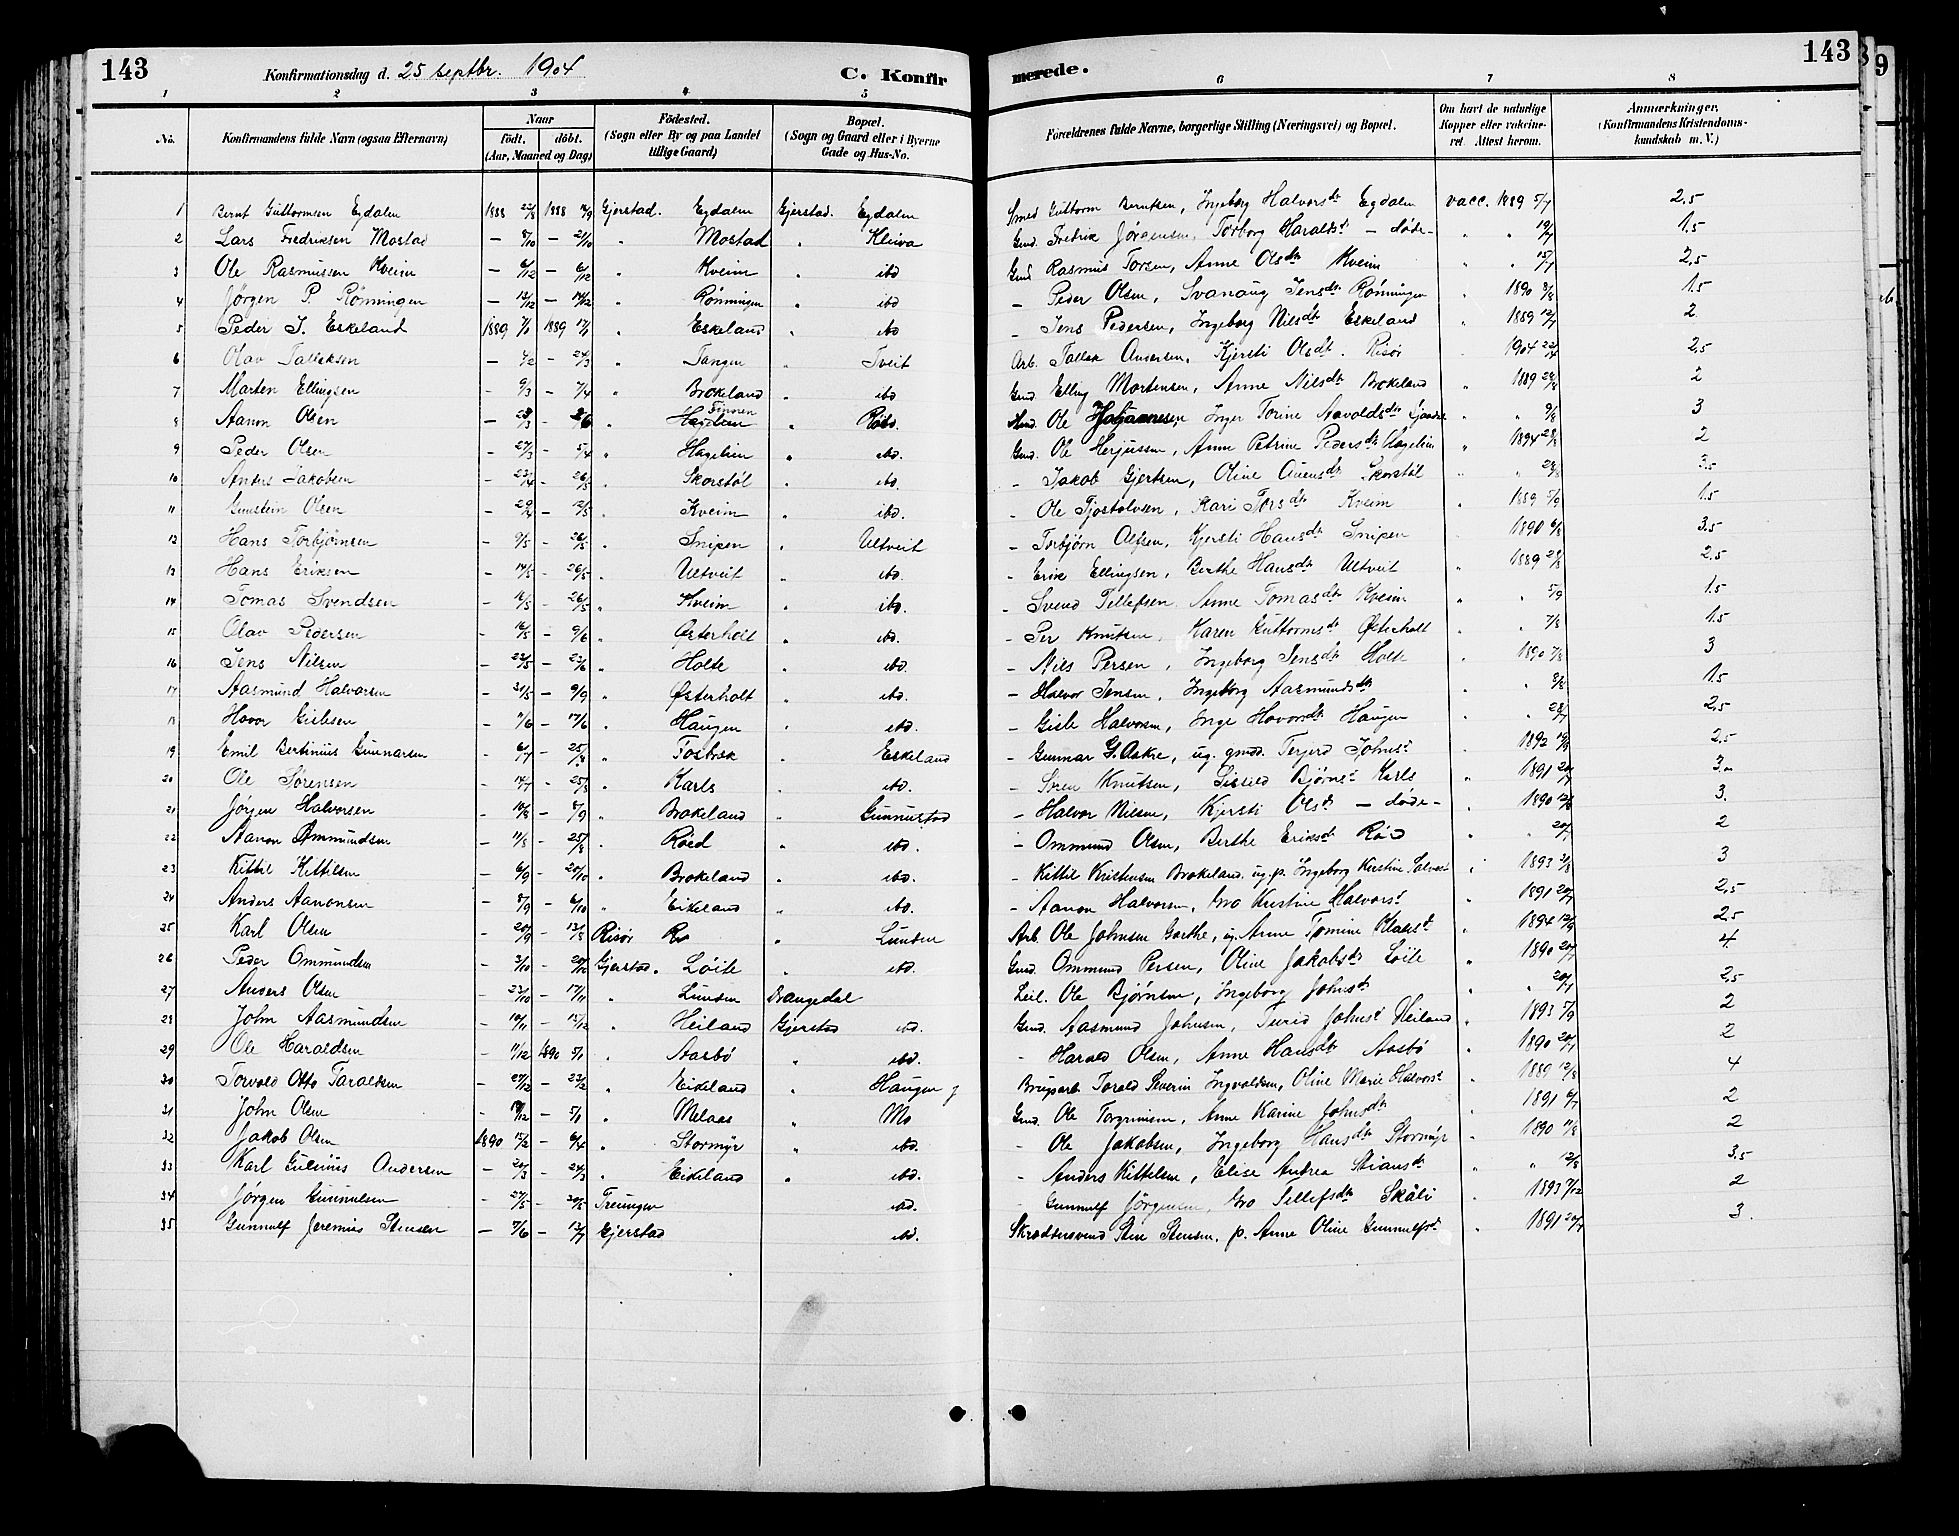 143 Konfirmationsdag d. 25 septbr. 1904 C. Konfirmerede. 143
1 2 3 4 5 6 7 8
No. Konfirmandens fulde Navn (ogsaa Efternavn) Naar født, døbt. (Aar, Maaned og Dag) Fødested. (Sogn eller By og paa Landet tillige Gaard) Bopæl. (Sogn og Gaard eller i Byerne Gade og Hus-No. Forældrenes fulde Navne, borgerlige Stilling (Næringsvei) og Bopæl. Om havt de naturlige Kopper eller vakcineret. Attest herom. Anmærkninger. (Konfirmandens Kristendomskundskab m. V.)
1 Bernt Guttormsen Egdalen 1888 1888 Gjerstad. Egdalen Gjerstad. Egdalen Smed Guttorm Berntsen, Ingeborg Halvorsdtr Egdalen vacc. 1889 5/7 2,5
2 Lars Fredriksen Mostad – 8/10 – 21/10 " Mostad " Kleiva Gmd. Fredrik Jørgensen, Torborg Haraldsdt – døde – " " 19/7 1.5
3 Ole Rasmussen Kveim – 6/12 – 6/12 " Kveim " ibd Gmd Rasmus Torsen, Anne Olsdtr Kveim " " 15/7 2,5
4 Jørgen P. Rønningen – 12/12 – 14/12 " Rønningen " ibd – Peder Olsen, Svanaug Jensdtr Rønningen " 1890 8/8 1.5
5 Peder J. Eskeland 1889 1889 " Eskeland " ibd – Jens Pedersen, Ingeborg Nilsdtr Eskeland " 1889 12/7 2.
6 Olav Talleksen – 4/2 – 24/3 " Tangen " Tveit Arb. Tallak Aanonsen, Kjersti Olsdtr. Risør 1904 22/4 2,5
7 Marten Ellingsen – 9/3 – 7/4 " Brokeland " ibd Gmd Elling Mortensen, Anne Nilsdtr Brokeland " 1889 2
8 Aanon Olsen – 23/3 – " Finnen " Ole Johannesen, Inger Torine Aavoldsdtr " " 9/8 3
9 Peder Olsen – 27/3 – 5/4 " Hagelien " ibd. Gmd. Ole Herjussen, Anne Petrine Pedersdtr Hagelien " 1894 2
10 Anders Jakobsen – 23/4 – 26/5 " Skorstøl " ibd. – Jakob Gjertsen, Oline Auensdtr Skorstøl " " 3.5
11 Gunstein Olsen – 29/4 – 12/5 " Kveim " ibd. – Ole Tjostolvsen, Kari Torsdtr Kveim " 1889 5/9 1.5
12 Hans Torbjørnsen – 9/5 – 26/5 " Snipen " Ultveit – Torbjørn Olsen, Kjersti Hansdtr Snipen 1890 6/8 3.5
13 Hans Eriksen – 14/5 – 26/5 " Ultveit " ibd. – Erik Ellingsen, Berthe Hansdtr Ultveit " 1889 2.5
14 Tomas Svendsen – 16/5 – 26/5 " Kveim " ibd. – Svend Tellefsen, Anne Tomasdtr Kveim " " 5/9 1.5
15 Olav Pedersen – 16/5 – 9/6 " Østerholt " ibd. – Per Knutsen, Karen Guttormsdt Østerholt " " 7/8 1.5
16 Jens Nilsen – 23/5 – 23/6 " Holte " ibd. – Nils Persen, Ingeborg Jensdtr Holte " 1890 7/8 3
17 Aasmund Halvorsen – 31/5 – 9/9 " Østerholt " ibd. – Halvor Jensen, Ingeborg Aasmundsdtr " " 8/8 1.5
18 Hovor Gislesen – 7/6 – 17/6 " Haugen " ibd. – Gisle Halvorsen, Inge Hovorsdtr Haugen " " 2,5
19 Emil Bertinius Gunnarsen – – 25/8 " Fosbæk " Eskeland – Gunnar G. Aakre, ug. gmd. Terjerd Johnsdt " 1892 2.5
20 Ole Sørensen – 14/7 – 25/8 " Karls " ibd. – Søren Knutsen, Sissild Bjørnsdt Karls " 1891 20/7 3.
21 Jørgen Halvorsen – – 8/9 " Brokeland " Gunnustad – Halvor Nilsen, Kjersti Olsdt – døde – " 1890 3.
22 Aanon Ommundsen – 11/8 – 25/8 " Røed " ibd. – Ommund Olsen, Berthe Eriksdtr Røed " " 20/7 2
23 Kittil Kittilsen – 6/9 – 20/10 " Brokeland " ibd. – Kittil Kristensen Brokeland. ug. p. Ingeborg Kirstine Salvesdt " 1893 3
24 Anders Aanonsen – 8/9 – 6/10 " Eikeland " ibd. – Aanon Halvorsen, Gro Kirstine Halvorsdt " 1891 20/7 2,5
25 Karl Olsen – 20/9 – Risør Lunden Arb. Ole Johnsen Garthe, ug. Anne Tomine Klausdt " 1894 12/9 2.5
26 Peder Ommundsen – 3/10 – 20/12 Gjerstad. Løite " ibd. Gmd. Ommund Persen, Oline Jakobsdtr Løite " 1890 20/7 4
27 Anders Olsen – 23/10 – 17/11 " Lunden Drangedal Leil. Ole Bjørnsen, Ingeborg Johnsdt " " 20/7 2,5
28 John Aasmundsen – 10/11 – 15/12 " Heiland Gjerstad ibd. Gmd. Aasmund Johnsen, Turid Johnsdt Heiland " 1893 5/9 2
29 Ole Haraldsen – 11/12 1890 5/1 " Aasbø " ibd. – Harald Olsen, Anne Hansdtr Aasbø " 1890 20/7 2
30 Torvald Otto Taraldsen – 27/12 – 23/2 " Eikeland " Haugen Brugsarb. Torald Severin Ingvaldsen, Oline Marie Halvorsdt " 1889 12/8 4
31 John Olsen – – 5/1 " Melaas " Mo Gmd. Ole Torgrimsen, Anne Karine Johnsdtr " 1891 6/7 2
32 Jakob Olsen 1890 – 6/4 " Stormyr " ibd. – Ole Jakobsen, Ingeborg Hansdtr Stormyr " 1890 11/8 2
33 Karl Gulenius Andersen – 20/3 – 24/3 " Eikeland " ibd. – Anders Kittelsen, Elise Andrea Stiansdt " " 12/8 3.5
34 Jørgen Gunnulsen – – Treungen ibd. Gunnulf Jørgensen, Gro Tellefsdtr Skåli " 1893 7/12 2
35 Gunnulf Jeremias Stensen – 7/6 – 13/7 Gjerstad ibd. Skrædersvend Sten Stensen, p. Anne Oline Gunnulfsdt " 1891 20/7 3.